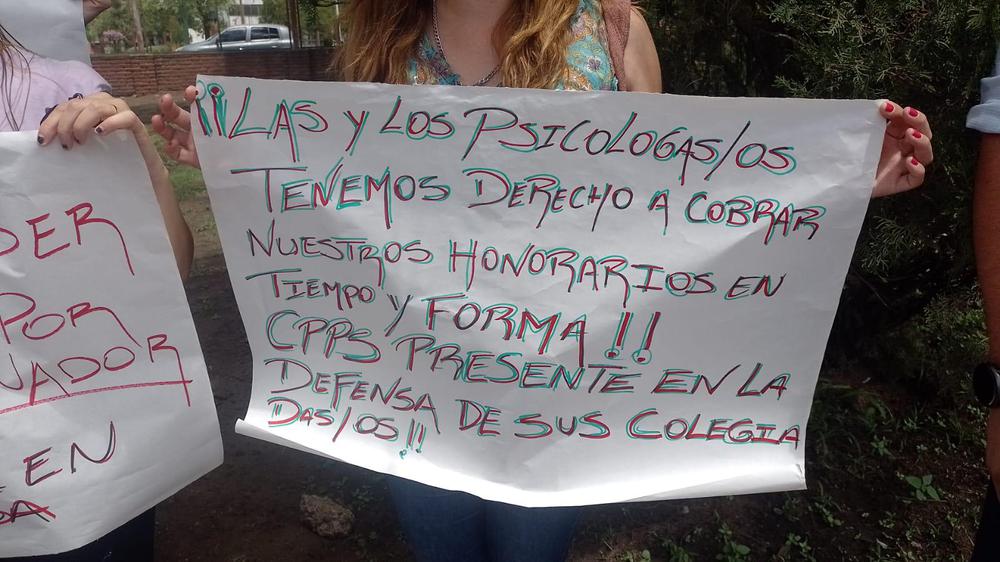 ¡¡LAS Y LOS PSICOLOGAS/OS
TENEMOS DERECHO A COBRAR
NUESTROS HONORARIOS EN
TIEMPO Y FORMA!!
CPPS PRESENTE EN LA
DEFENSA DE SUS COLEGIA
DAS/OS!!
DER
POR
NADOR
EN
DA